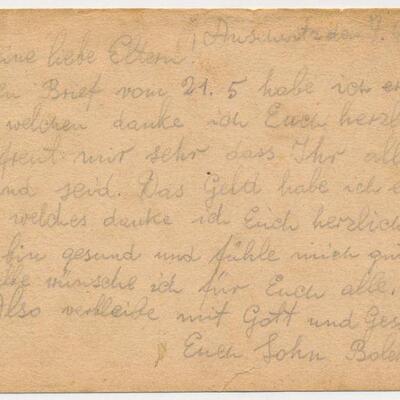 ine liebe Eltern! Auschwitz den 7.
en Brief vom 21.5 habe ich er
welchen danke ich Euch herzl
freut mir sehr dass Ihr all
und seid. Das Geld habe ich e
welches danke ich Euch herzlich
bin gesund und fühle mich gu
wünsche ich für Euch alle.
Also verbleibe mit Gott und Ges
Euch Sohn Bole